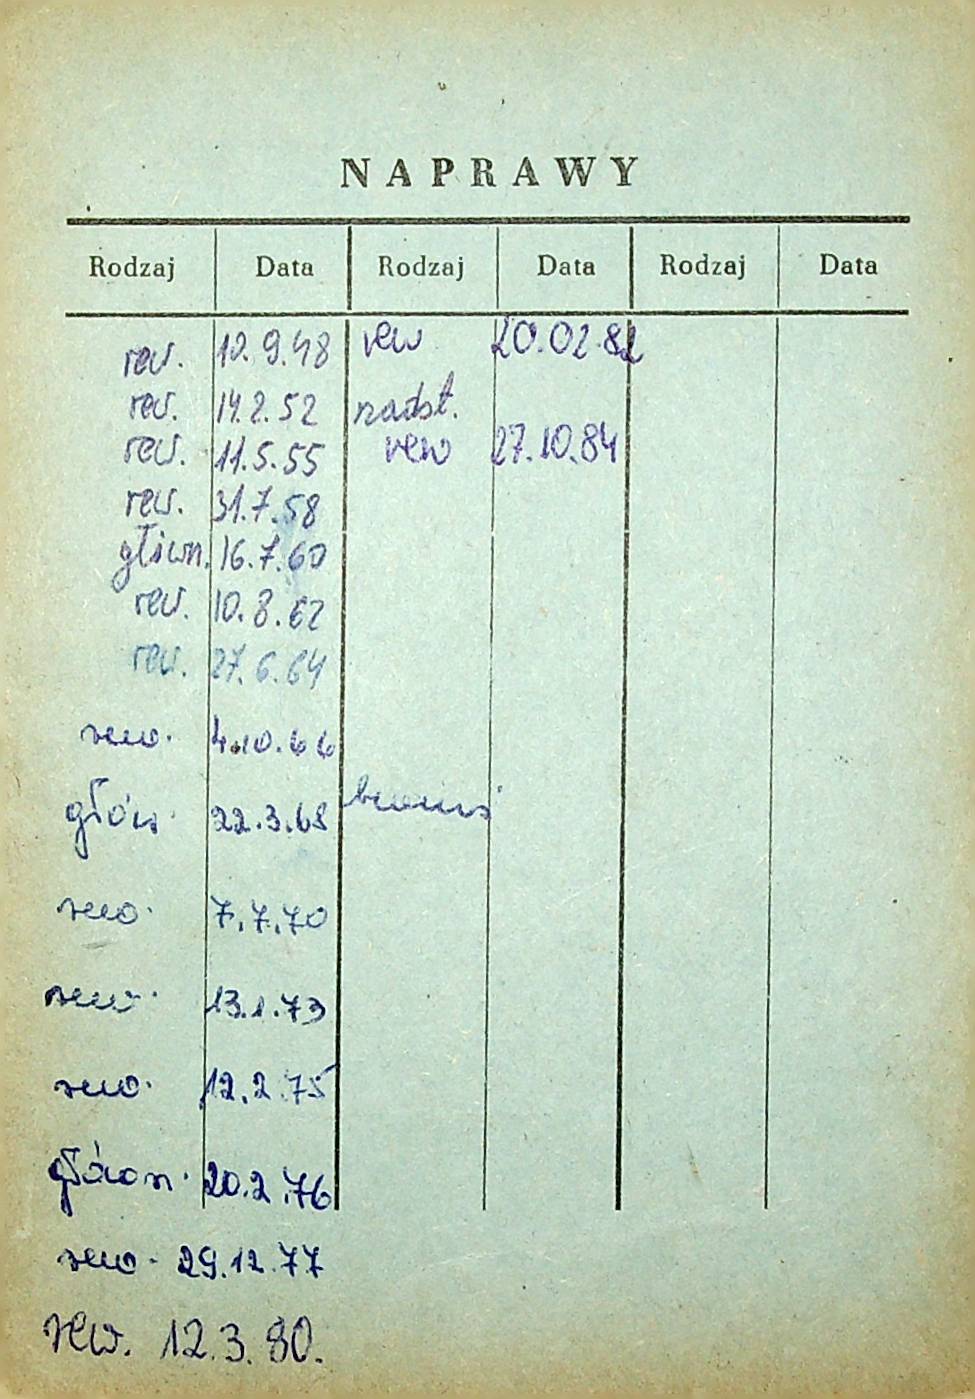 NAPRAWY
Rodzaj Data Rodzaj Data Rodzaj Data
rew. 10.9.48 rew 20.02.82
rew. 14.2.52 nadst.
rew. 11.5.55 rew 27.10.84
rew. 31.7.58
główn. 16.7.60
rew. 10.8.62
rew. 27.6.64
rew. 4.10.66
główn. 22.3.68
rew. 7.7.70
rew. 13.1.73
rew. 12.2.75
główn. 20.2.76
rew. 29.12.77
rew. 12.3.80.